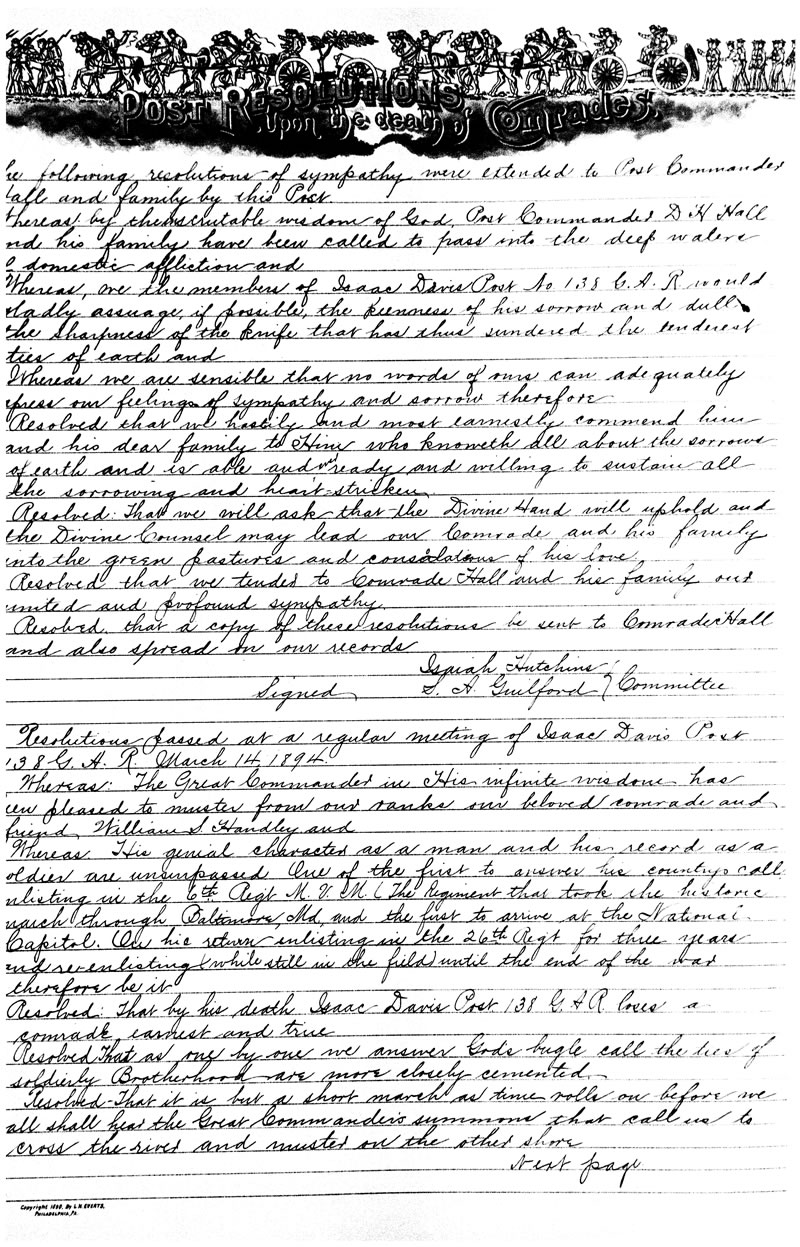 Post Resolutions
Upon the death of Comrades.
he following resolutions of sympathy were extended to Post Commander
all and family by this Post.
hereas by the inscrutable wisdom of God, Post Commander D H Hall
nd his family have been called to pass into the deep waters
domestic affliction and
Whereas, we the members of Isaac Davis Post No 138 G. A. R would
ladly assuage, if possible, the keenness of his sorrow and dull
the sharpness of the knife that has thus sundered the tenderest
ties of earth and
Whereas we are sensible that no words of ours can adequately
press our feelings of sympathy and sorrow therefore
Resolved that we hastily and most earnestly commend him
and his dear family to Him who knoweth all about the sorrows
of earth and is able and ready and willing to sustain all
the sorrowing and heart-stricken
Resolved: That we will ask that the Divine Hand will uphold and
the Divine Counsel may lead our Comrade and his family
into the green pastures and consolations of his love.
Resolved that we tender to Comrade Hall and his family our
united and profound sympathy.
Resolved. that a copy of these resolutions be sent to Comrade Hall
and also spread on our records
Isaiah Hutchins
Signed S. H. Guilford } Committee
Resolutions passed at a regular meeting of Isaac Davis Post
138 G. A. R. March 14, 1894
Whereas: The Great Commander in His infinite wisdom has
een pleased to muster from our ranks our beloved comrade and
friend, William S Handley and
Whereas. His genial character as a man and his record as a
oldier are unsurpassed One of the first to answer his countrys call
nlisting in the 6th Regt M. V. M. (The Regiment that took the historic
march through Baltimore, Md, and the first to arrive at the National
Capitol. On his return enlisting in the 26th Regt for three years
and re-enlisting (while still in the field) until the end of the war
therefore be it
Resolved: That by his death Isaac Davis Post 138 G A R. loses a
comrade earnest and true
Resolved That as one by one we answer Gods bugle call the ties of
soldierly Brotherhood are more closely cemented.
Resolved-That it is but a short march as time rolls on before we
all shall hear the Great Commanders summons that call us to
cross the river and muster on the other shore
Next page
Copyright 1890, By L.H. EVERTS,
PHILADELPHIA, PA.